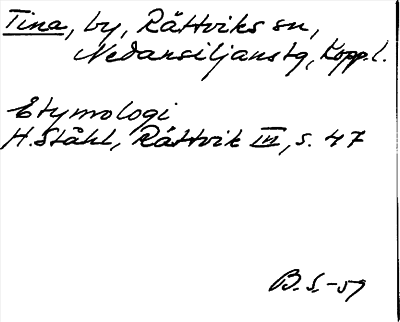 Tina, by, Rättviks sn,
Nedansiljanstg, Kopp.l.
Etymologi
H. Ståhl, Rättvik III, s. 47
B.S.-59